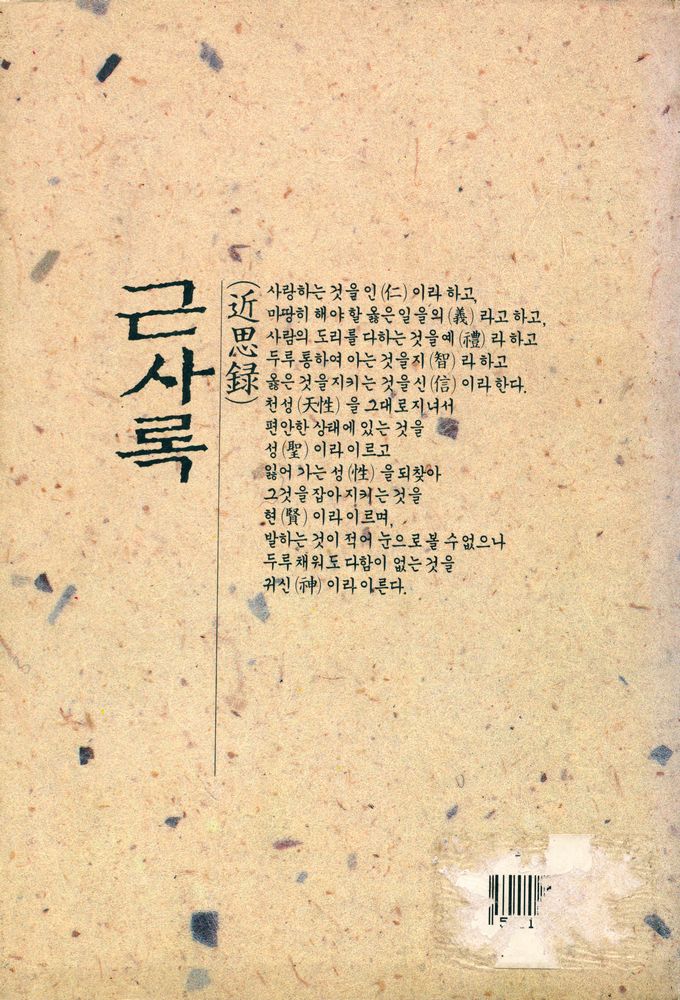 근사록
(近思録)
사랑하는 것을 인(仁)이라 하고,
마땅히 해야 할 옳은 일을의(義)라고 하고,
사람의 도리를 다하는 것을예(禮)라 하고
두루 통하여 아는 것을지(智)라 하고
옳은 것을 지키는 것을 신(信)이라 한다.
천성(天性)을 그대로지녀서
편안한 상태에 있는 것을
성(聖)이라 이르고
잃어 가는 성(性)을 되찾아
그것을 잡아 지키는 것을
현(賢)이라 이르며,
발하는 것이 적어 눈으로 볼 수 없으나
두루 채워도 다함이 없는 것을
귀신(神)이라 이른다.